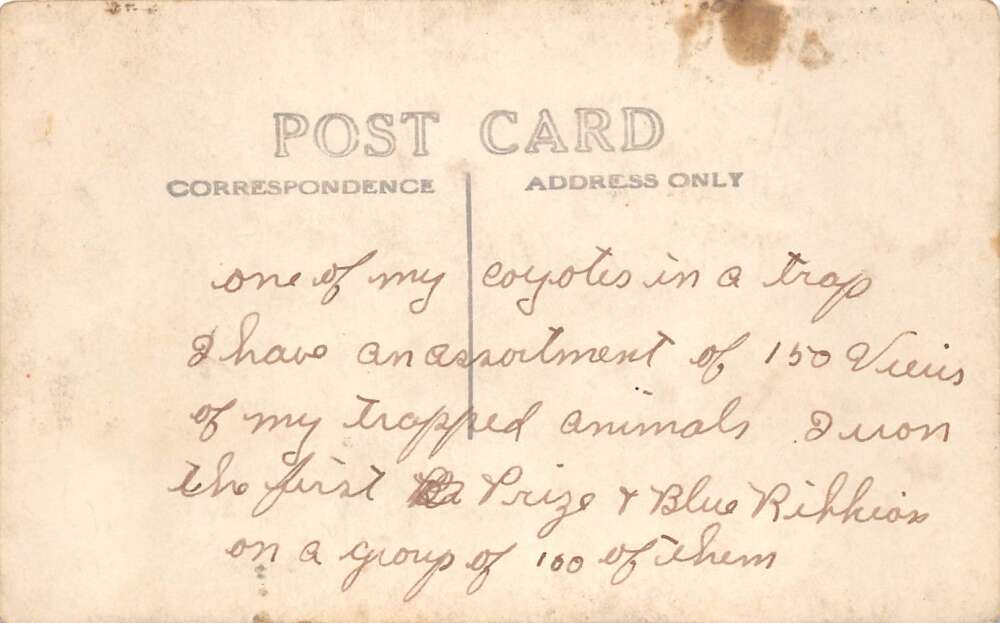 POST CARD
CORRESPONDENCE ADDRESS ONLY
one of my coyotes in a trap
I have an assortment of 150 Views
of my trapped animals I won
the first Prize & Blue Ribbion
on a group of 100 of them